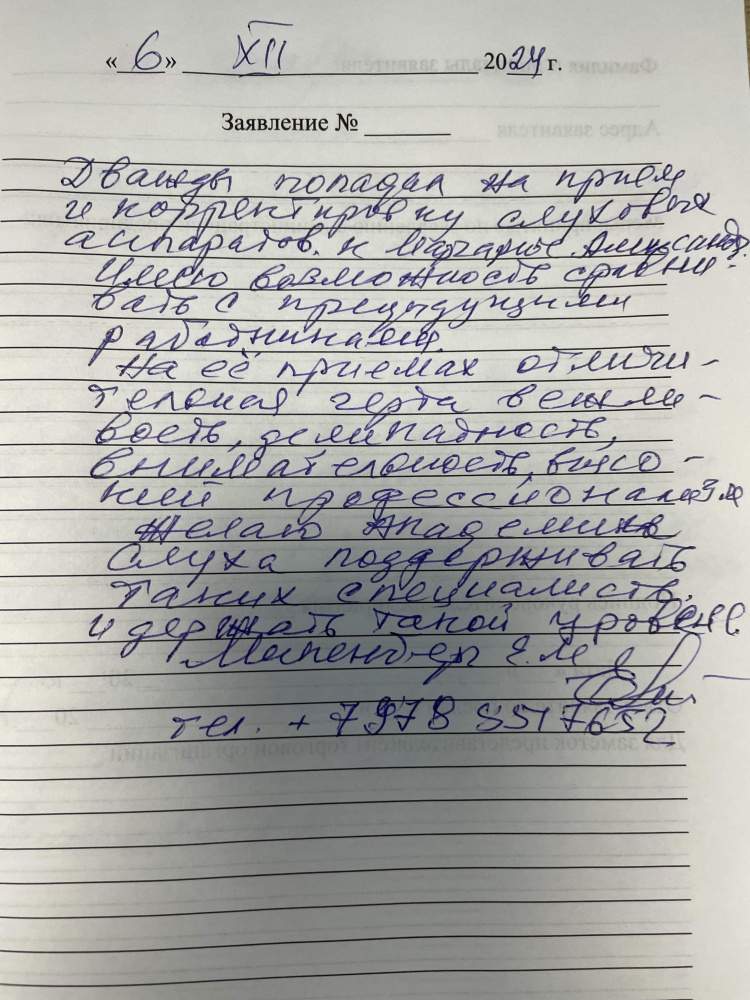 «6» XII 2024 г.
Заявление № 
Дважды попадал на прием
и корректировку слуховых
аппаратов. к Александ.
Имею возможность сравни-
вать с предыдущими
работниками.
На её приемах отличи-
тельная черта вежли-
вость, деликатность,
внимательность, высо-
кий профессионализм
Желаю Академию
Слуха поддерживать
таких специалистов.
и держать такой уровень.
Е.М
тел. + 7978 5517652